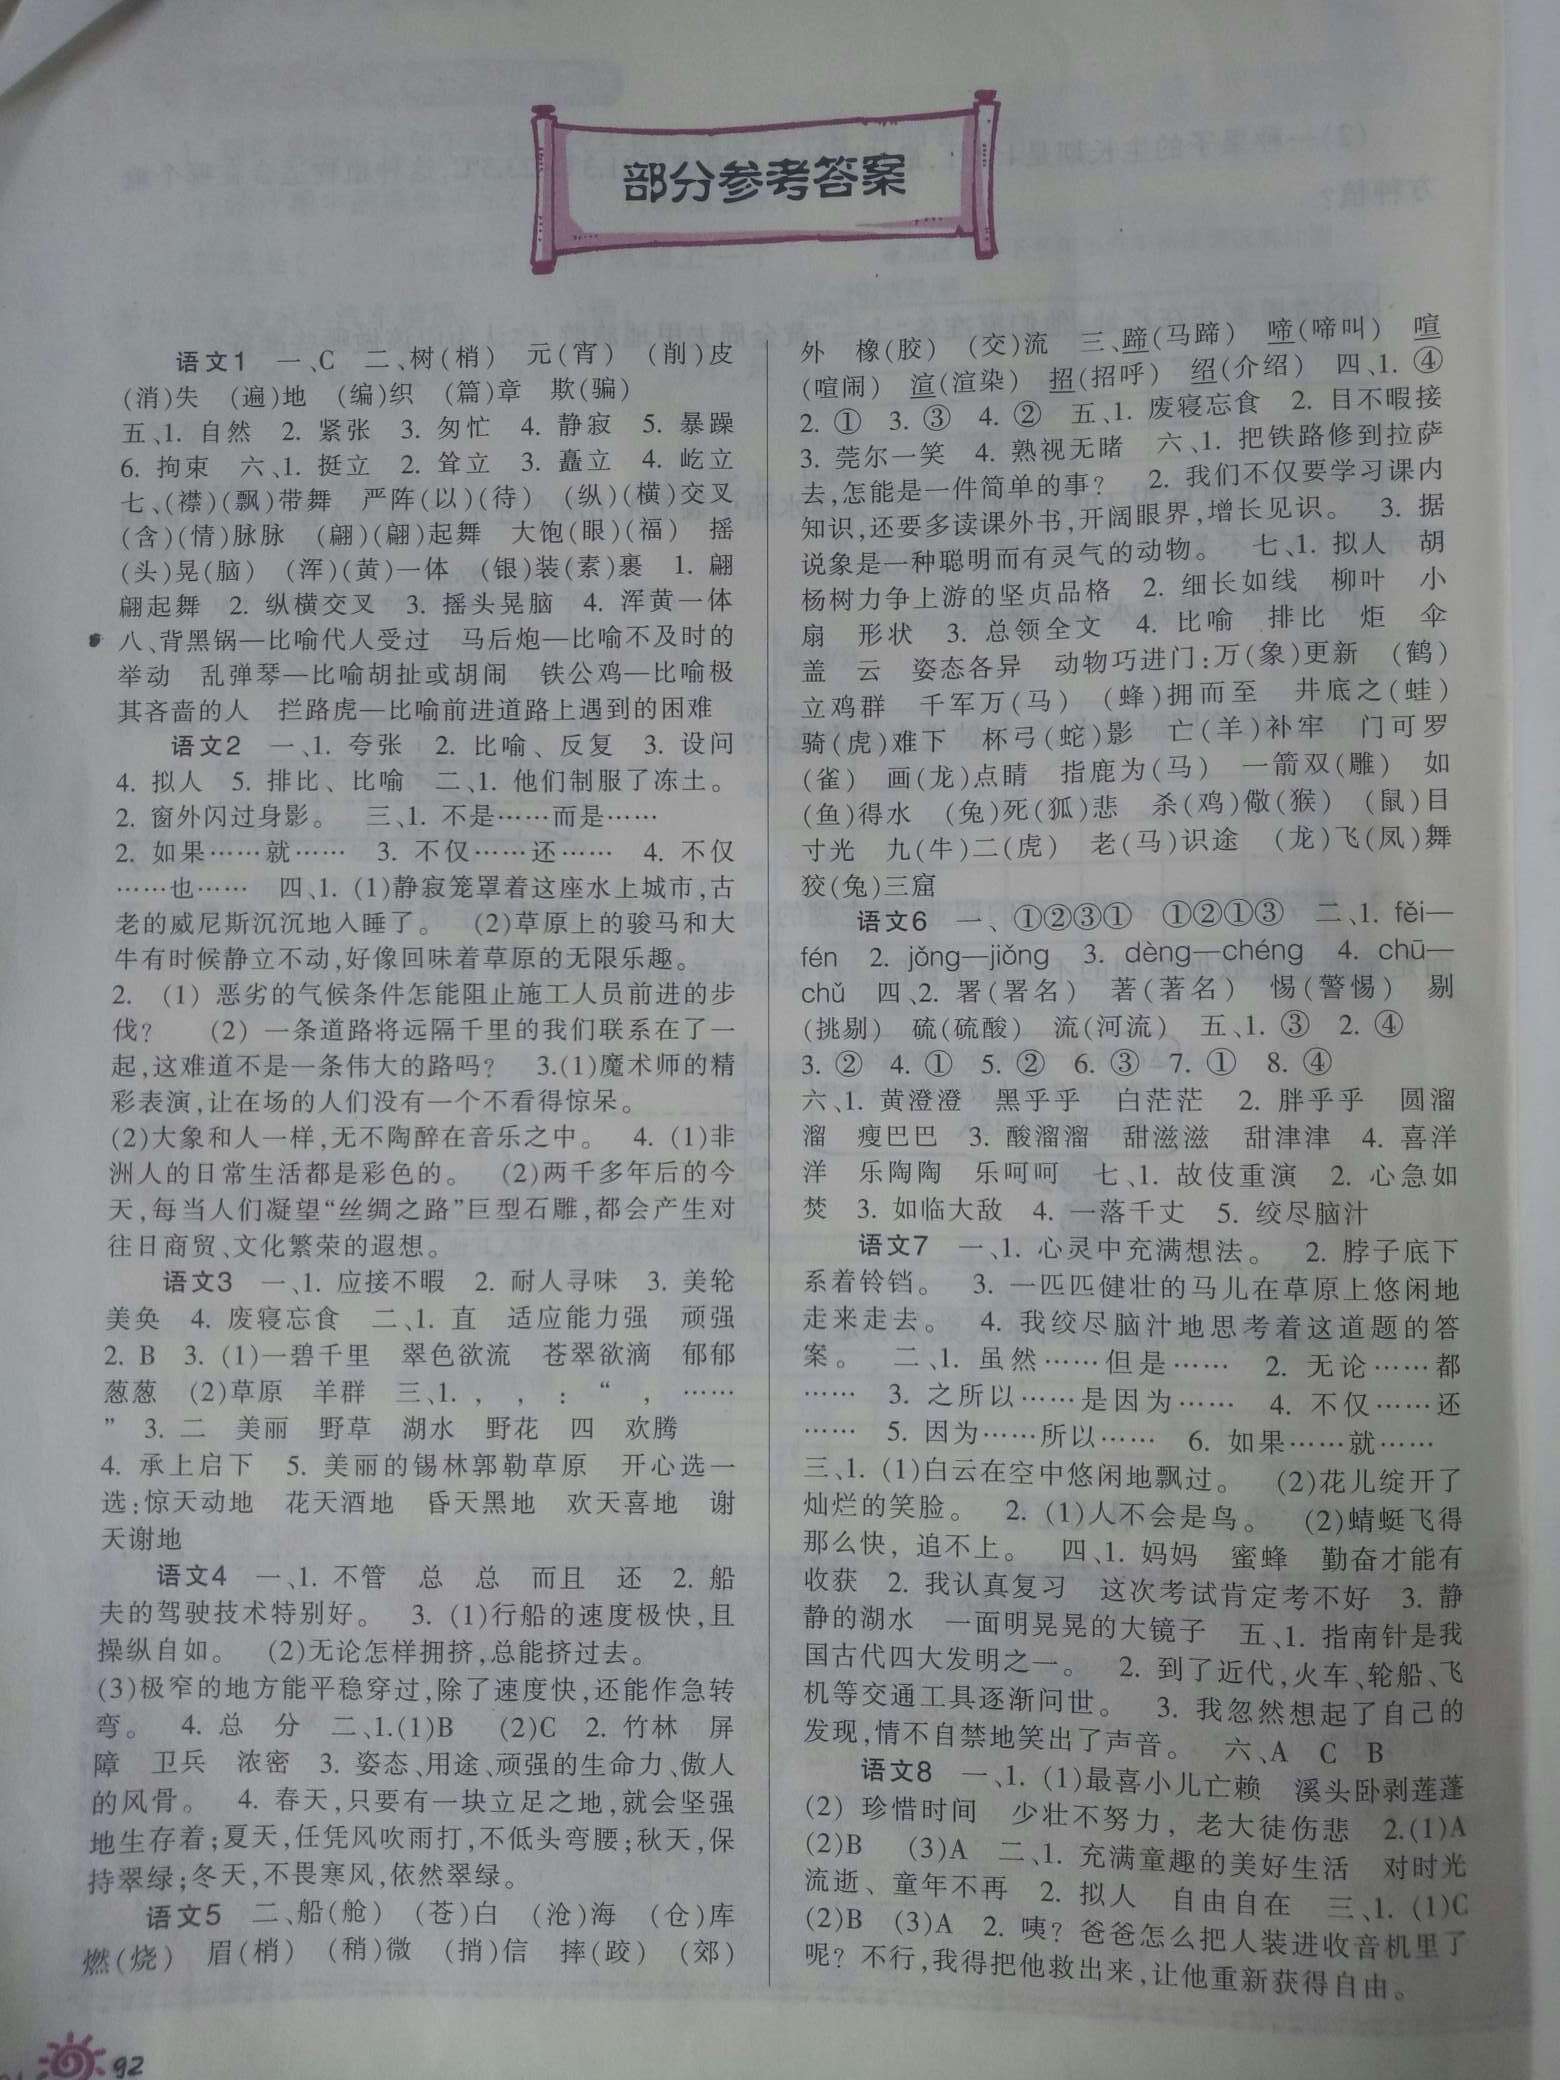 部分参考答案
语文1 一、C 二、树(梢) 元(宵) (削)皮
(消)失 (遍)地 (编)织 (篇)章 欺(骗)
五、1. 自然 2. 紧张 3. 匆忙 4. 静寂 5. 暴躁
6. 拘束 六、1. 挺立 2. 耸立 3. 矗立 4. 屹立
七、(襟)(飘)带舞 严阵(以)(待) (纵)(横)交叉
(含)(情)脉脉 (翩)(翩)起舞 大饱(眼)(福) 摇
(头)晃(脑) (浑)(黄)一体 (银)装(素)裹 1. 翩
翩起舞 2. 纵横交叉 3. 摇头晃脑 4. 浑黄一体
八、背黑锅—比喻代人受过 马后炮—比喻不及时的
举动 乱弹琴—比喻胡扯或胡闹 铁公鸡—比喻极
其吝啬的人 拦路虎—比喻前进道路上遇到的困难
语文2 一、1. 夸张 2. 比喻、反复 3. 设问
4. 拟人 5. 排比、比喻 二、1. 他们制服了冻土。
2. 窗外闪过身影。 三、1. 不是……而是……
2. 如果……就…… 3. 不仅……还…… 4. 不仅
……也…… 四、1. (1)静寂笼罩着这座水上城市,古
老的威尼斯沉沉地入睡了。 (2)草原上的骏马和大
牛有时候静立不动,好像回味着草原的无限乐趣。
2. (1) 恶劣的气候条件怎能阻止施工人员前进的步
伐? (2) 一条道路将远隔千里的我们联系在了一
起,这难道不是一条伟大的路吗? 3.(1)魔术师的精
彩表演,让在场的人们没有一个不看得惊呆。
(2)大象和人一样,无不陶醉在音乐之中。 4. (1)非
洲人的日常生活都是彩色的。 (2)两千多年后的今
天,每当人们凝望“丝绸之路”巨型石雕,都会产生对
往日商贸、文化繁荣的遐想。
语文3 一、1. 应接不暇 2. 耐人寻味 3. 美轮
美奂 4. 废寝忘食 二、1. 直 适应能力强 顽强
2. B 3. (1)一碧千里 翠色欲流 苍翠欲滴 郁郁
葱葱 (2)草原 羊群 三、1. , , : “ , ……
” 3. 二 美丽 野草 湖水 野花 四 欢腾
4. 承上启下 5. 美丽的锡林郭勒草原 开心选一
选:惊天动地 花天酒地 昏天黑地 欢天喜地 谢
天谢地
语文4 一、1. 不管 总 总 而且 还 2. 船
夫的驾驶技术特别好。 3. (1)行船的速度极快,且
操纵自如。 (2)无论怎样拥挤,总能挤过去。
(3)极窄的地方能平稳穿过,除了速度快,还能作急转
弯。 4. 总 分 二、1.(1)B (2)C 2. 竹林 屏
障 卫兵 浓密 3. 姿态、用途、顽强的生命力、傲人
的风骨。 4. 春天,只要有一块立足之地,就会坚强
地生存着;夏天,任凭风吹雨打,不低头弯腰;秋天,保
持翠绿;冬天,不畏寒风,依然翠绿。
语文5 二、船(舱) (苍)白 (沧)海 (仓)库
燃(烧) 眉(梢) (稍)微 (捎)信 摔(跤) (郊)
外 橡(胶) (交)流 三、蹄(马蹄) 啼(啼叫) 喧
(喧闹) 渲(渲染) 招(招呼) 绍(介绍) 四、1. ④
2. ① 3. ③ 4. ② 五、1. 废寝忘食 2. 目不暇接
3. 莞尔一笑 4. 熟视无睹 六、1. 把铁路修到拉萨
去,怎能是一件简单的事? 2. 我们不仅要学习课内
知识,还要多读课外书,开阔眼界,增长见识。 3. 据
说象是一种聪明而有灵气的动物。 七、1. 拟人 胡
杨树力争上游的坚贞品格 2. 细长如线 柳叶 小
扇 形状 3. 总领全文 4. 比喻 排比 炬 伞
盖 云 姿态各异 动物巧进门:万(象)更新 (鹤)
立鸡群 千军万(马) (蜂)拥而至 井底之(蛙)
骑(虎)难下 杯弓(蛇)影 亡(羊)补牢 门可罗
(雀) 画(龙)点睛 指鹿为(马) 一箭双(雕) 如
(鱼)得水 (兔)死(狐)悲 杀(鸡)儆(猴) (鼠)目
寸光 九(牛)二(虎) 老(马)识途 (龙)飞(凤)舞
狡(兔)三窟
语文6 一、①②③① ①②①③ 二、1. fěi—
fén 2. jǒng—jiǒng 3. dèng—chéng 4. chū—
chǔ 四、2. 署(署名) 著(著名) 惕(警惕) 剔
(挑剔) 硫(硫酸) 流(河流) 五、1. ③ 2. ④
3. ② 4. ① 5. ② 6. ③ 7. ① 8. ④
六、1. 黄澄澄 黑乎乎 白茫茫 2. 胖乎乎 圆溜
溜 瘦巴巴 3. 酸溜溜 甜滋滋 甜津津 4. 喜洋
洋 乐陶陶 乐呵呵 七、1. 故伎重演 2. 心急如
焚 3. 如临大敌 4. 一落千丈 5. 绞尽脑汁
语文7 一、1. 心灵中充满想法。 2. 脖子底下
系着铃铛。 3. 一匹匹健壮的马儿在草原上悠闲地
走来走去。 4. 我绞尽脑汁地思考着这道题的答
案。 二、1. 虽然……但是…… 2. 无论……都
…… 3. 之所以……是因为…… 4. 不仅……还
…… 5. 因为……所以…… 6. 如果……就……
三、1. (1)白云在空中悠闲地飘过。 (2)花儿绽开了
灿烂的笑脸。 2. (1)人不会是鸟。 (2)蜻蜓飞得
那么快, 追不上。 四、1. 妈妈 蜜蜂 勤奋才能有
收获 2. 我认真复习 这次考试肯定考不好 3. 静
静的湖水 一面明晃晃的大镜子 五、1. 指南针是我
国古代四大发明之一。 2. 到了近代,火车、轮船、飞
机等交通工具逐渐问世。 3. 我忽然想起了自己的
发现,情不自禁地笑出了声音。 六、A C B
语文8 一、1. (1)最喜小儿亡赖 溪头卧剥莲蓬
(2) 珍惜时间 少壮不努力, 老大徒伤悲 2.(1)A
(2)B (3)A 二、1. 充满童趣的美好生活 对时光
流逝、童年不再 2. 拟人 自由自在 三、1. (1)C
(2)B (3)A 2. 咦? 爸爸怎么把人装进收音机里了
呢? 不行,我得把他救出来,让他重新获得自由。
92